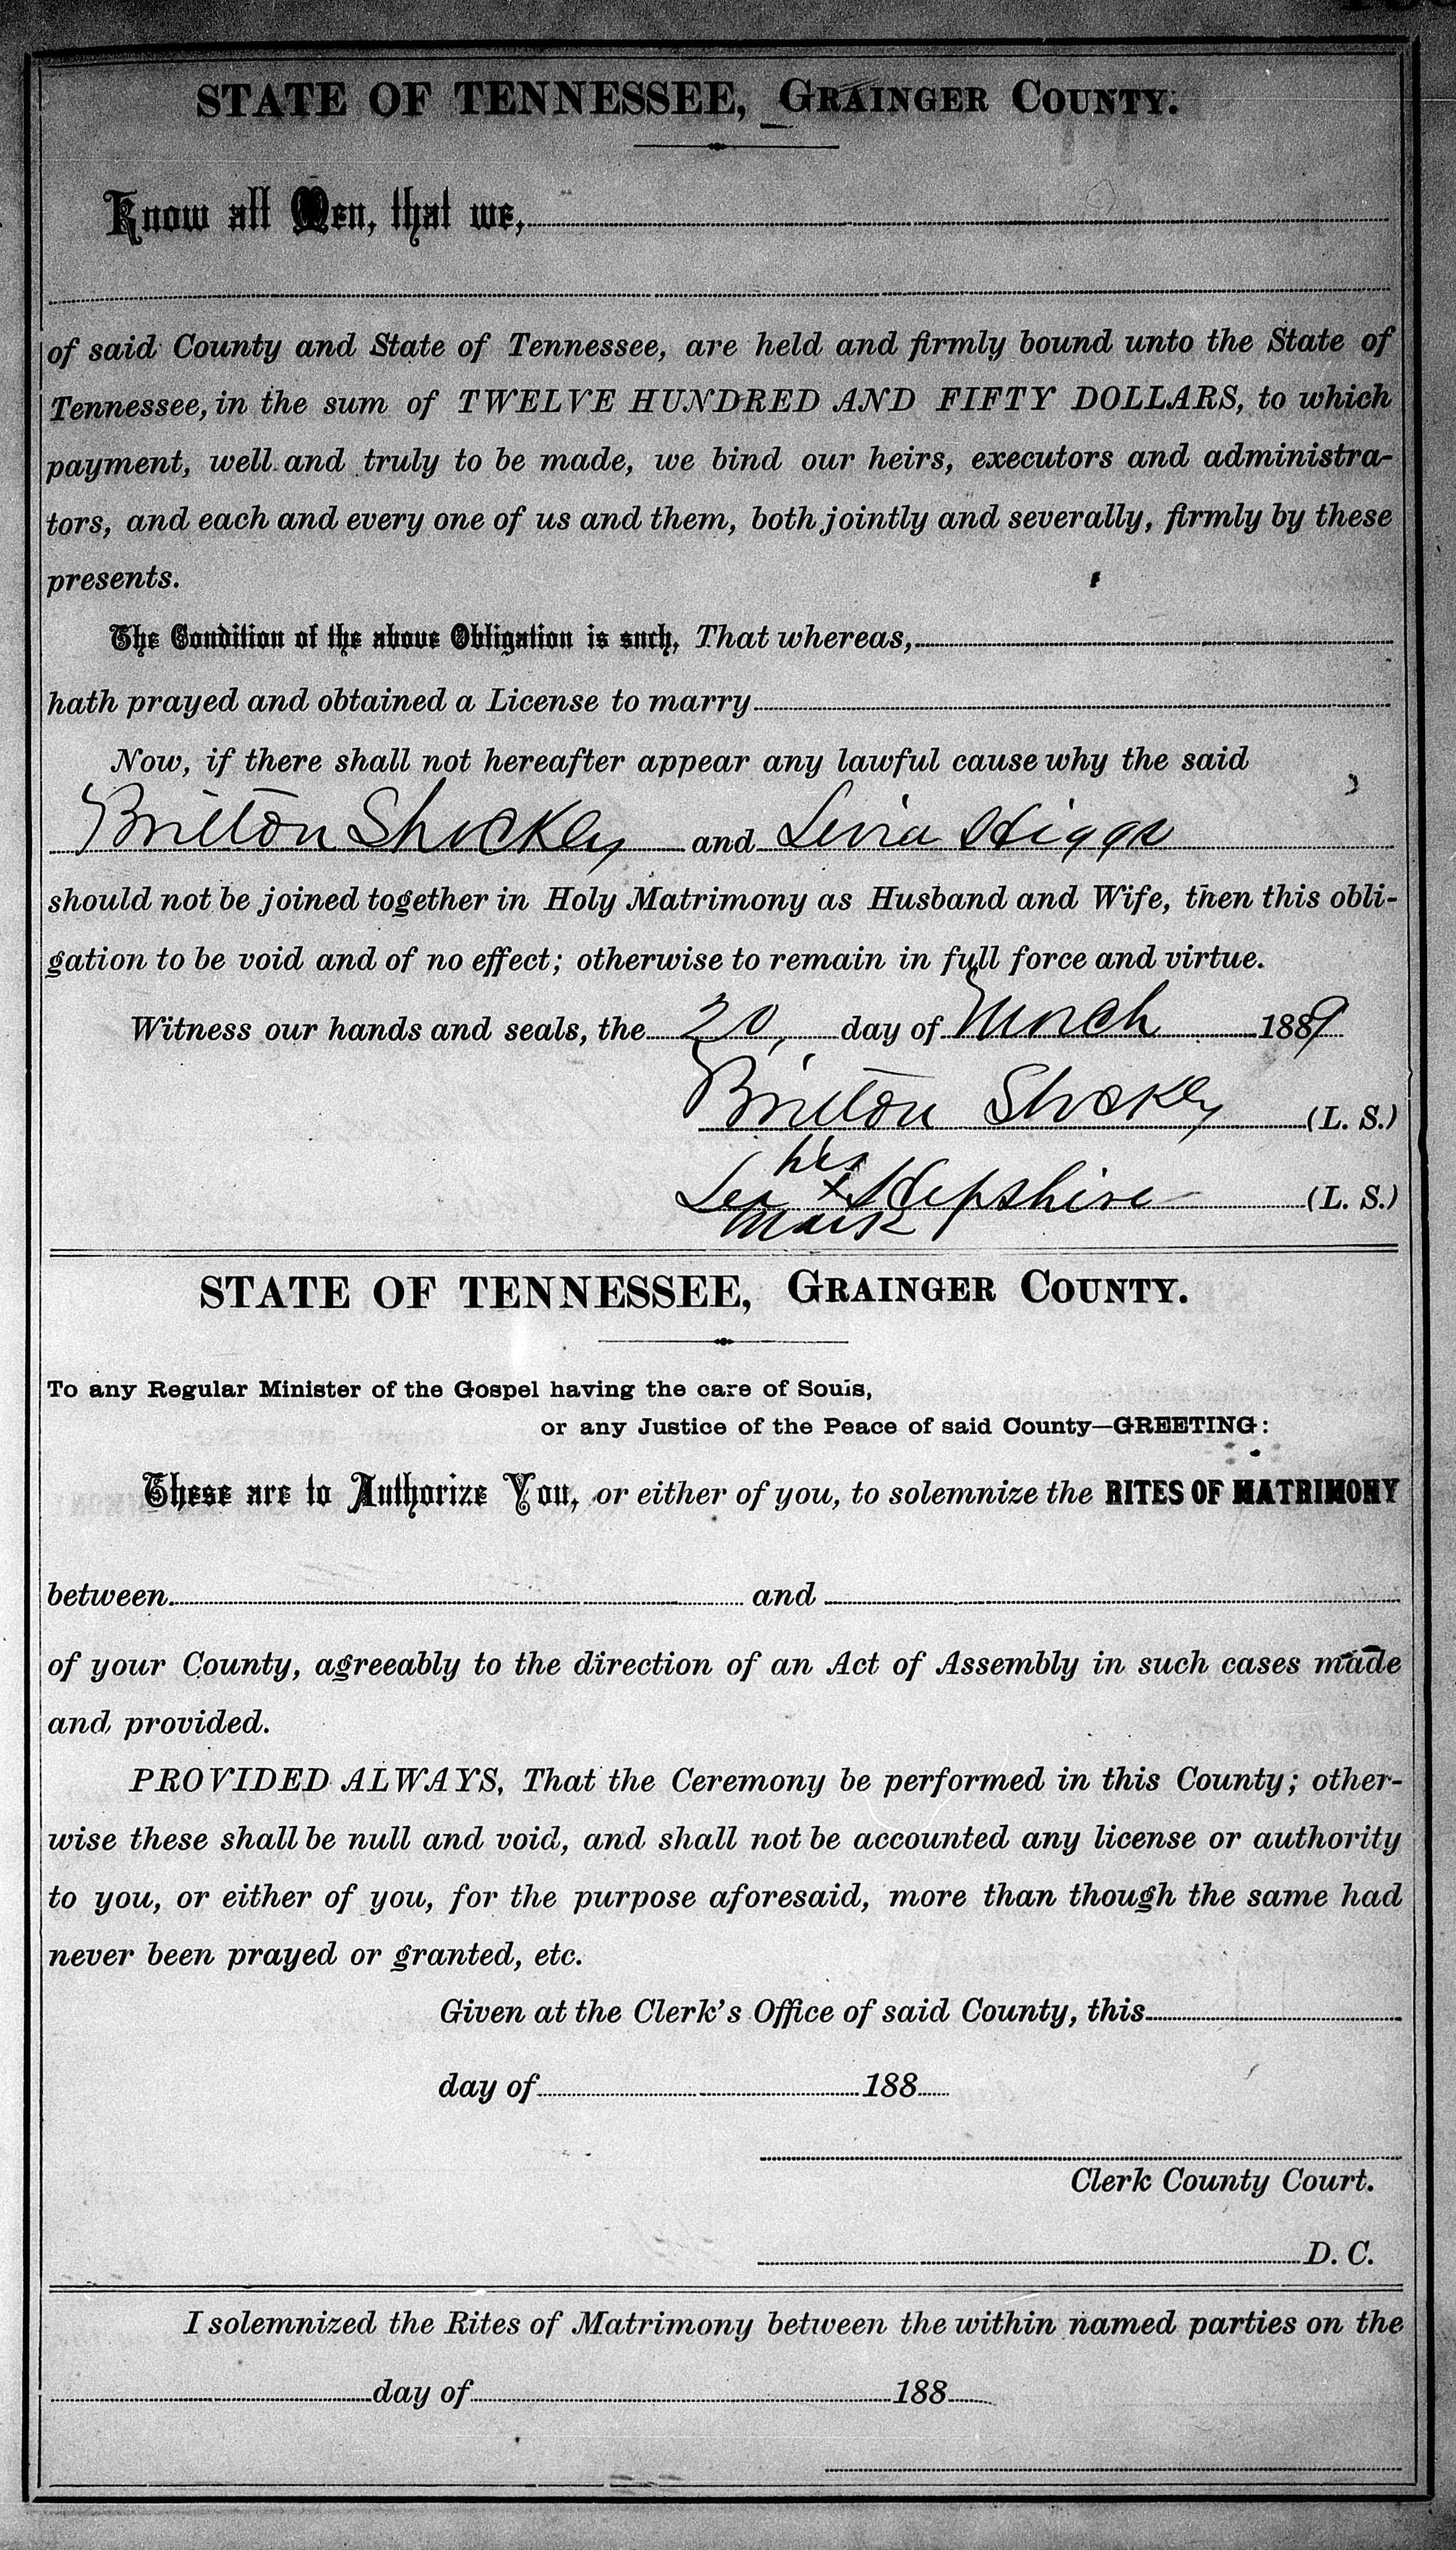 STATE OF TENNESSEE, GRAINGER COUNTY.
Know all Men, that we,
of said County and State of Tennessee, are held and firmly bound unto the State of
Tennessee, in the sum of TWELVE HUNDRED AND FIFTY DOLLARS, to which
payment, well and truly to be made, we bind our heirs, executors and administra-
tors, and each and every one of us and them, both jointly and severally, firmly by these
presents.
The Condition of the above Obligation is such, That whereas,
hath prayed and obtained a License to marry
Now, if there shall not hereafter appear any lawful cause why the said
Britton Shockley and Levia Higgs
should not be joined together in Holy Matrimony as Husband and Wife, then this obli-
gation to be void and of no effect; otherwise to remain in full force and virtue.
Witness our hands and seals, the 20, day of March 1889
Britton Shockley (L. S.)
his
Lea x Hipshire (L. S.)
mark
STATE OF TENNESSEE, GRAINGER COUNTY.
To any Regular Minister of the Gospel having the care of Souls,
or any Justice of the Peace of said County—GREETING:
These are to Authorize You, or either of you, to solemnize the RITES OF MATRIMONY
between and
of your County, agreeably to the direction of an Act of Assembly in such cases made
and provided.
PROVIDED ALWAYS, That the Ceremony be performed in this County; other-
wise these shall be null and void, and shall not be accounted any license or authority
to you, or either of you, for the purpose aforesaid, more than though the same had
never been prayed or granted, etc.
Given at the Clerk's Office of said County, this
day of 188
Clerk County Court.
D. C.
I solemnized the Rites of Matrimony between the within named parties on the
day of 188